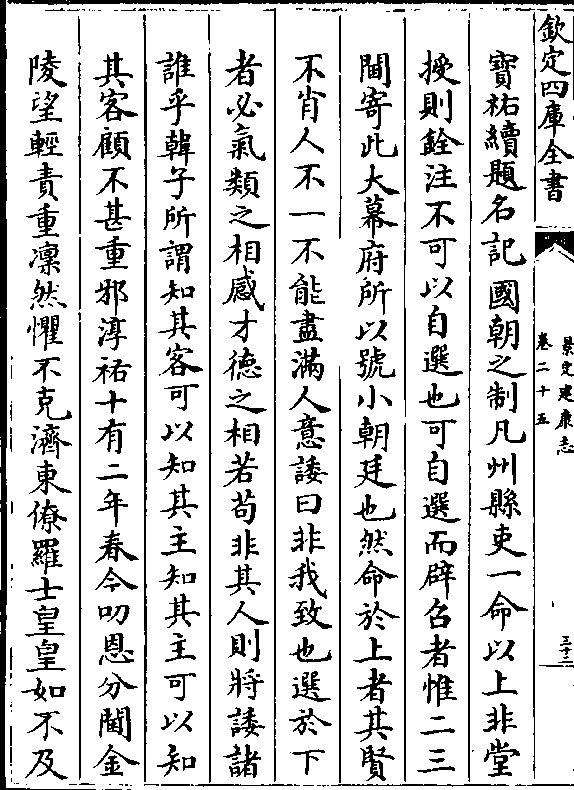 欽定四庫全書
景定建康志
卷二十五
三十二
寶祐續題名記國朝之制凡州縣吏一命以上非堂
授則銓注不可以自選也可自選而辟召者惟二三
閫寄此大幕府所以號小朝廷也然命於上者其賢
不肖人不一不能盡滿人意諉曰非我致也選於下
者必氣類之相感才德之相若苟非其人則將諉諸
誰乎韓子所謂知其客可以知其主知其主可以知
其客顧不甚重邪淳祐十有二年春今叨恩分閫金
陵望輕責重凜然懼不克濟東僚羅士皇皇如不及